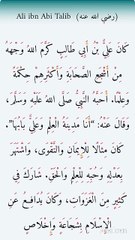 Ali ibn Abi Talib (رضي الله عنه)
كَانَ عَلِيُّ بْنُ أَبِي طَالِبٍ كَرَّمَ اللهُ وَجْهَهُ
مِنْ أَشْجَعِ الصَّحَابَةِ وَأَكْثَرِهِمْ حِكْمَةً
وَعِلْمًا، أَحَبَّهُ النَّبِيُّ صَلَّى اللهُ عَلَيْهِ وَسَلَّمَ،
وَقَالَ عَنْهُ: «أَنَا مَدِينَةُ الْعِلْمِ وَعَلِيٌّ بَابُهَا».
كَانَ مِثَالًا لِلْإِيمَانِ وَالتَّقْوَى، وَاشْتَهَرَ
بِعَدْلِهِ وَحُبِّهِ لِلْعِلْمِ وَالْحَقِّ، شَارَكَ فِي
كَثِيرٍ مِنَ الْغَزَوَاتِ، وَكَانَ يُدَافِعُ عَنِ
الْإِسْلَامِ بِشَجَاعَةٍ وَإِخْلَاصٍ